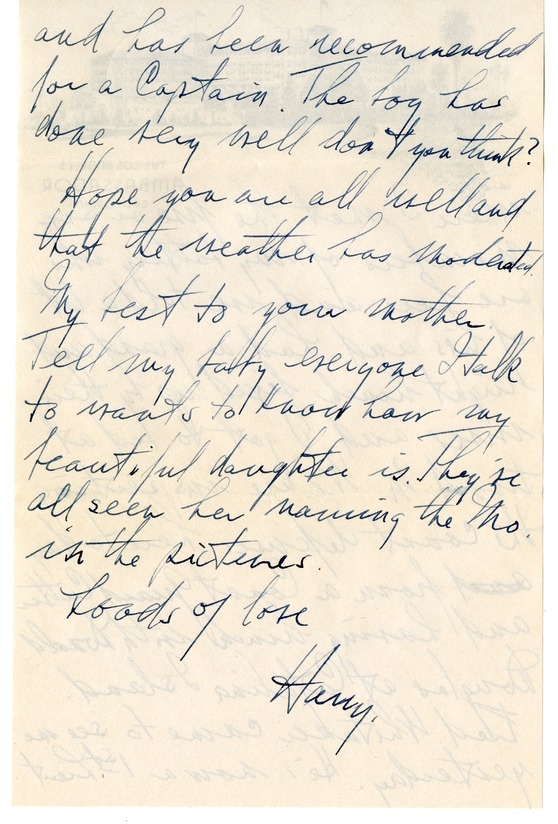 and has been recommended
for a Captain. The boy has
done very well don't you think?
Hope you are all well and
that the weather has moderated.
My best to your mother
Tell my baby everyone I talk
to wants to know how my
beautiful daughter is. They've
all seen her naming the Mo.
in the pictures.
Loads of love
Harry.